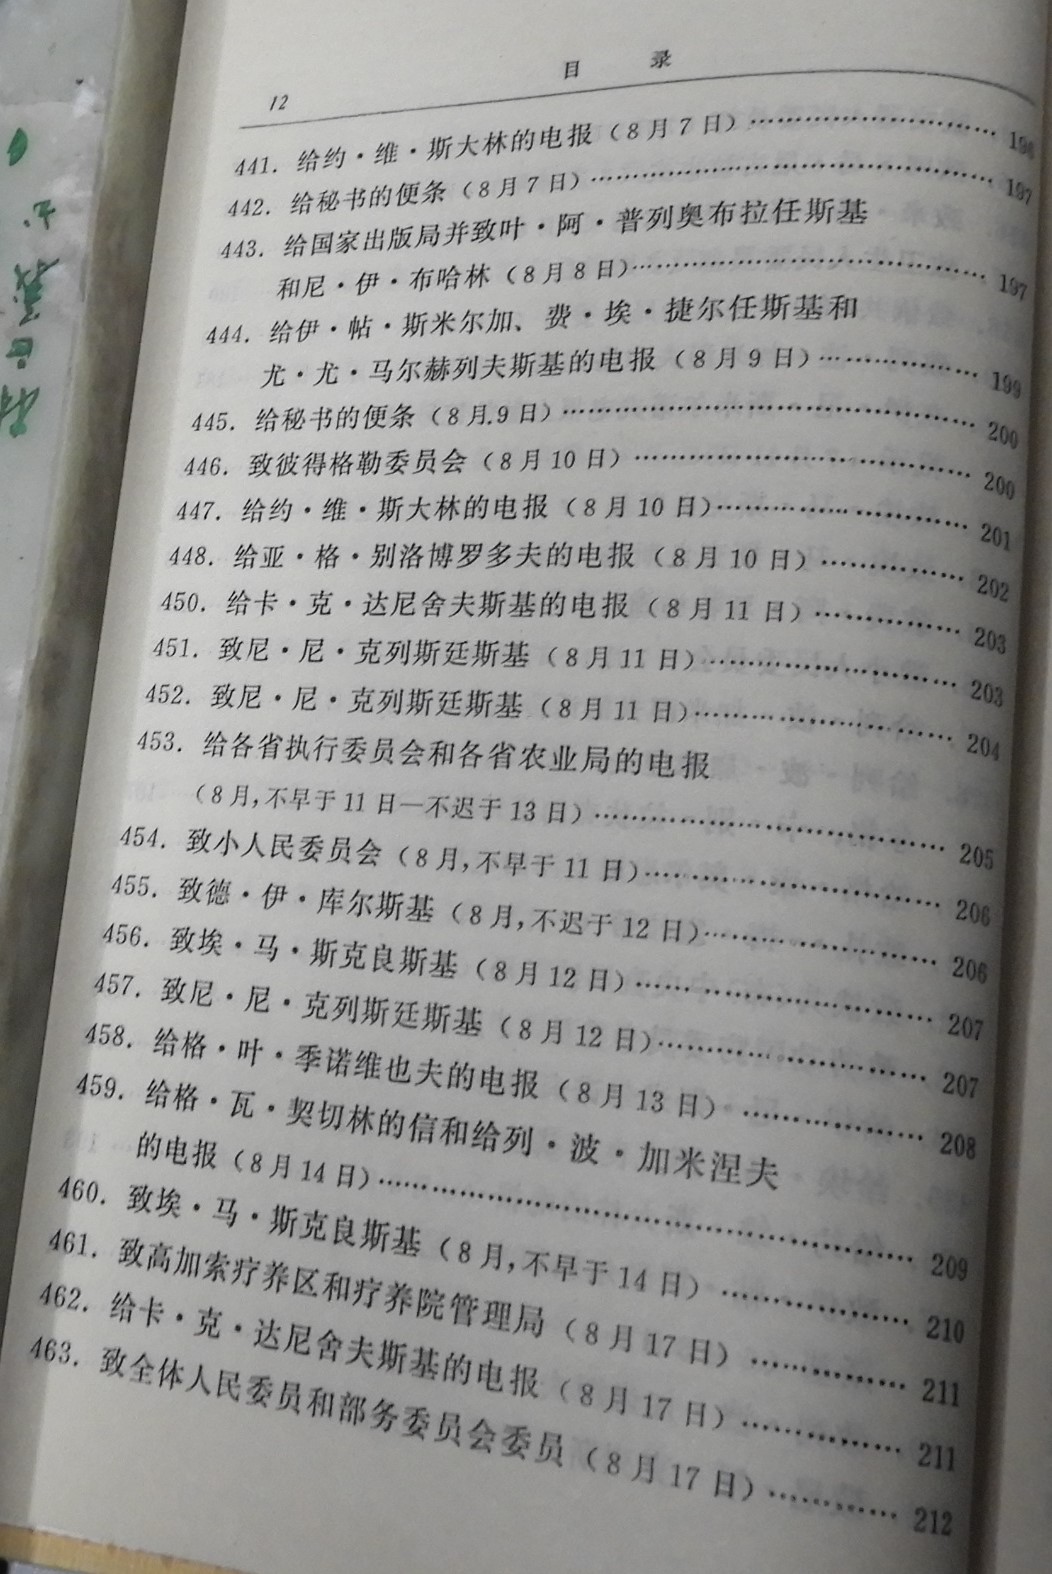 12
目　录
441. 给约·维·斯大林的电报（8月7日）…………………… 196
442. 给秘书的便条（8月7日）…………………………………… 197
443. 给国家出版局并致叶·阿·普列奥布拉任斯基
和尼·伊·布哈林（8月8日）………………………………… 197
444. 给伊·帖·斯米尔加、费·埃·捷尔任斯基和
尤·尤·马尔赫列夫斯基的电报（8月9日）……………… 199
445. 给秘书的便条（8月9日）…………………………………… 200
446. 致彼得格勒委员会（8月10日）…………………………… 200
447. 给约·维·斯大林的电报（8月10日）…………………… 201
448. 给亚·格·别洛博罗多夫的电报（8月10日）…………… 202
450. 给卡·克·达尼舍夫斯基的电报（8月11日）…………… 203
451. 致尼·尼·克列斯廷斯基（8月11日）…………………… 203
452. 致尼·尼·克列斯廷斯基（8月11日）…………………… 204
453. 给各省执行委员会和各省农业局的电报
（8月,不早于11日—不迟于13日）………………………… 205
454. 致小人民委员会（8月,不早于11日）…………………… 206
455. 致德·伊·库尔斯基（8月,不迟于12日）……………… 206
456. 致埃·马·斯克良斯基（8月12日）……………………… 207
457. 致尼·尼·克列斯廷斯基（8月12日）…………………… 207
458. 给格·叶·季诺维也夫的电报（8月13日）……………… 208
459. 给格·瓦·契切林的信和给列·波·加米涅夫
的电报（8月14日）…………………………………………… 209
460. 致埃·马·斯克良斯基（8月,不早于14日）…………… 210
461. 致高加索疗养区和疗养院管理局（8月17日）………… 211
462. 给卡·克·达尼舍夫斯基的电报（8月17日）…………… 211
463. 致全体人民委员和部务委员会委员（8月17日）……… 212